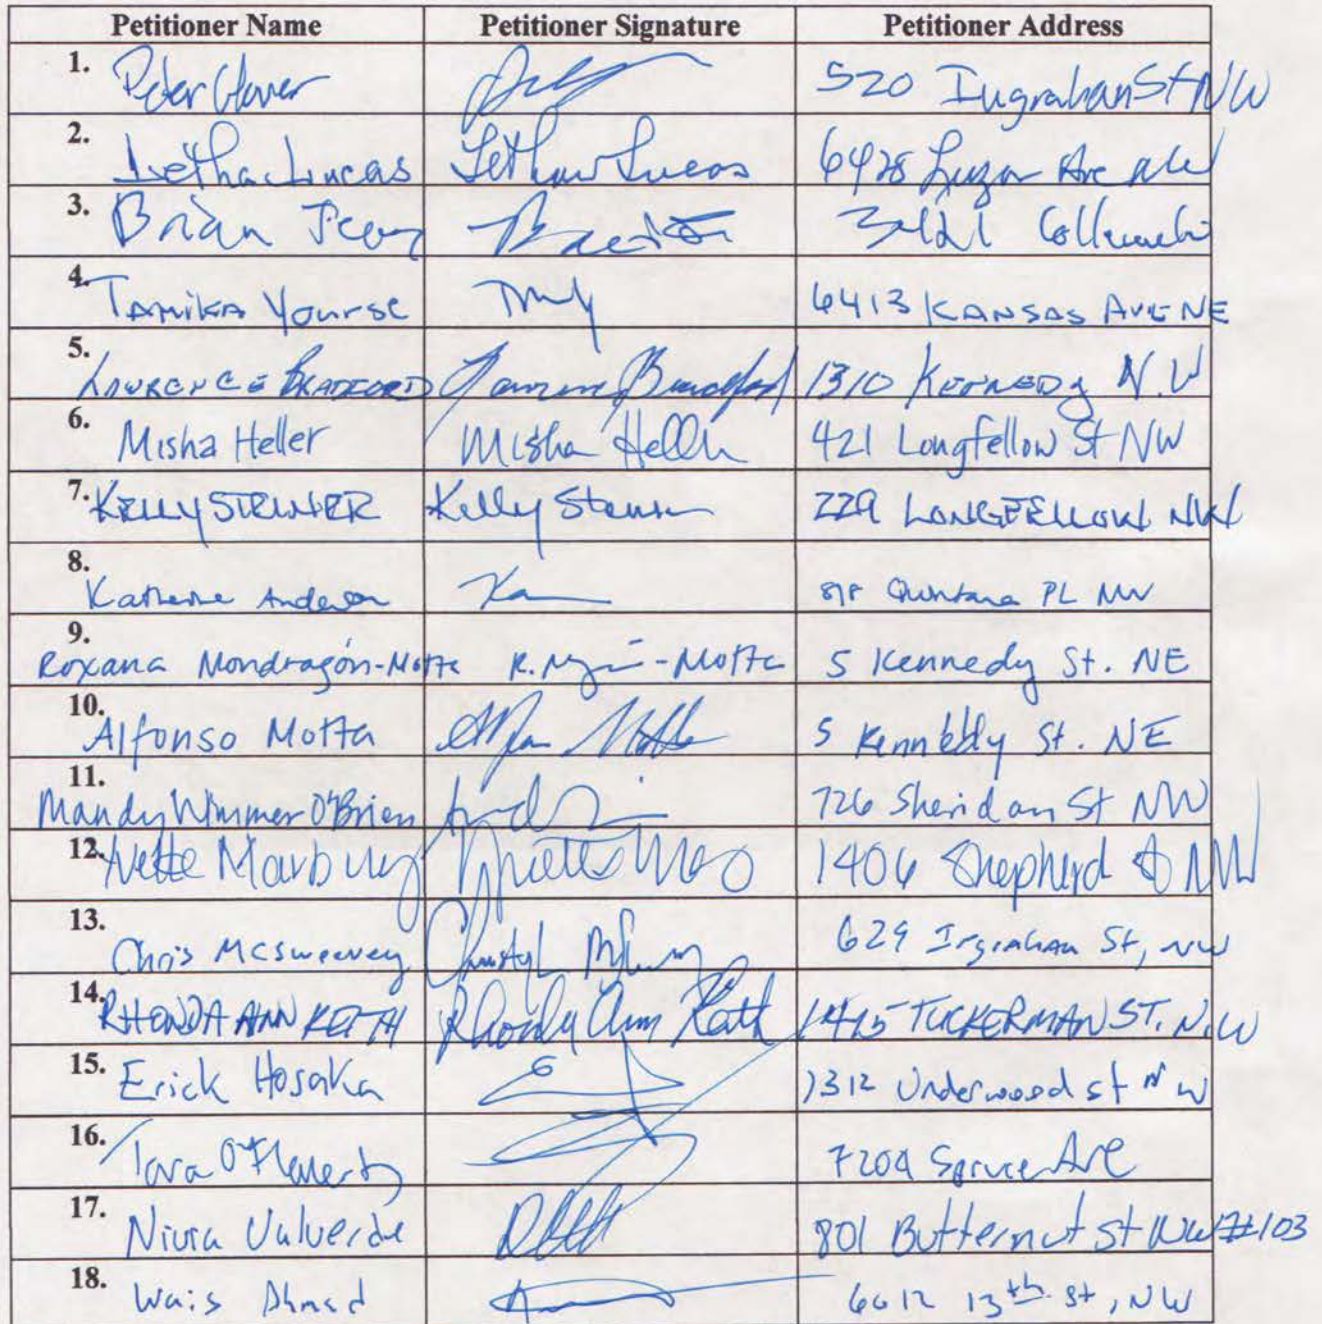 Petitioner Name Petitioner Signature Petitioner Address
1. Peter Glover 520 Ingrahan St NW
2. Letha Lucas Letha Lucas 6428 Luzon Ave NW
3. Brian
4. Tamika Yourse 6413 Kansas Ave NE
5. Lawrence Bradford 1310 Kennedy N.W
6. Misha Heller Misha Heller 421 Longfellow St NW
7. Kelly Steiner Kelly 229 Longfellow NW
8. Katherine Anderson Quintana PL NW
9. Roxana Mondragón-Motta R. -Motta 5 Kennedy St. NE
10. Alfonso Motta 5 Kennedy St. NE
11. Mandy Wimmer O'Brien 726 Sheridan St NW
12. Yvette Marbury 1406 Shepherd St NW
13. Chris McSweeney 629 Ingrahan St, NW
14. RHONDA ANN KEITH Ann Keith TUCKERMAN ST. N.W
15. Erick Hosaka 1312 Underwood st NW
16. Tara O'Flaherty 7209 Spruce Ave
17. Niura Valverde 801 Butternut St NW #103
18. Wais Ahmad 6612 13th st, NW